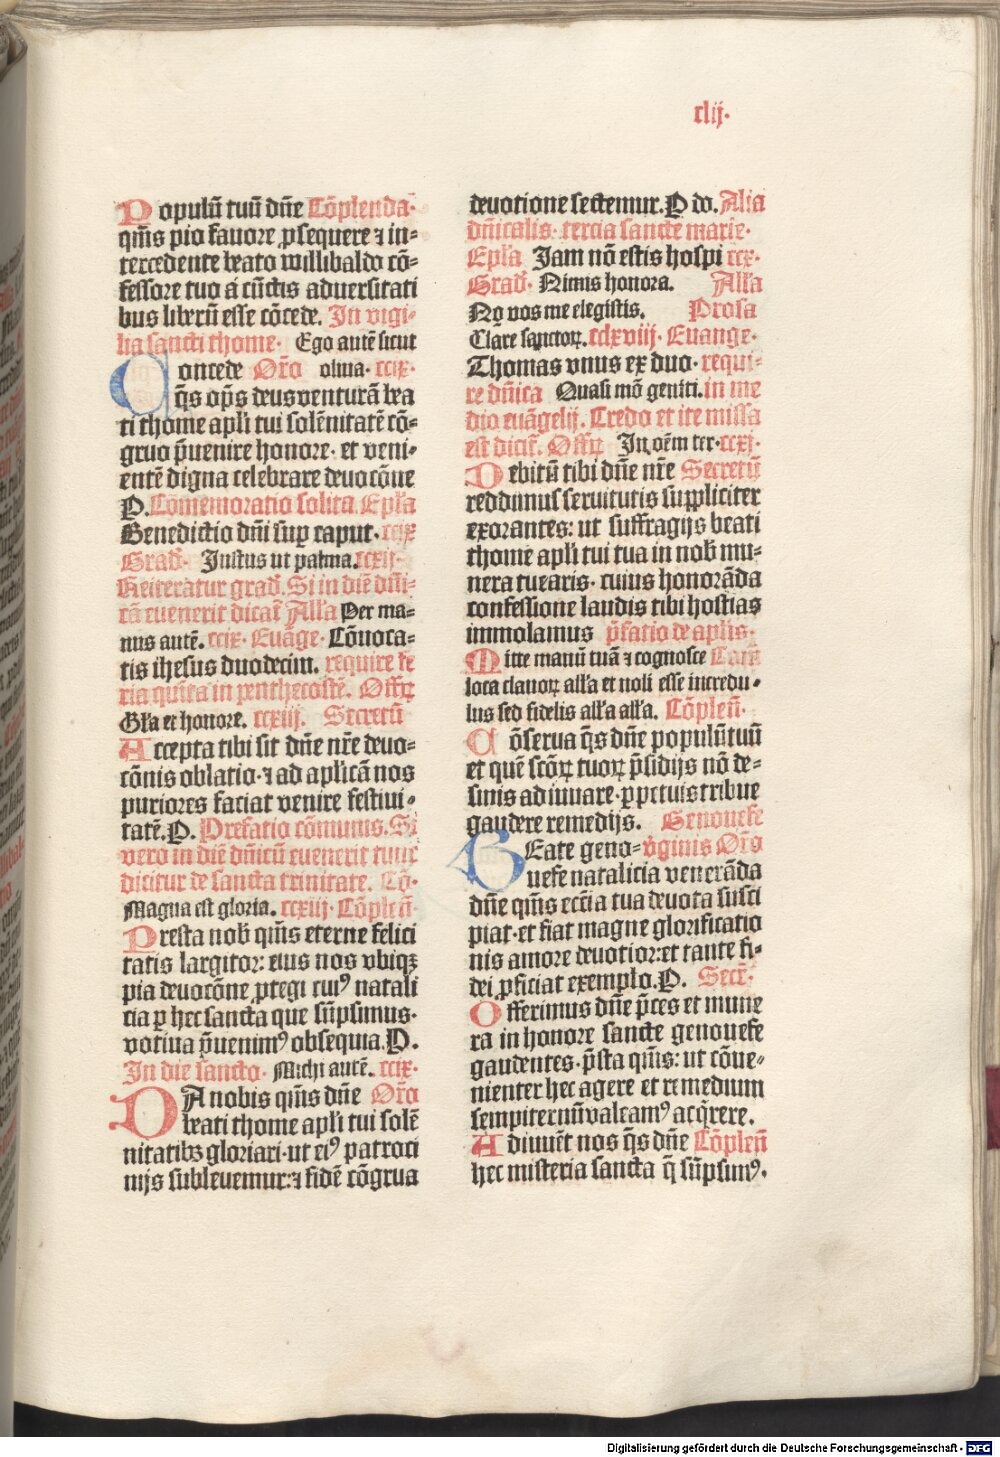 clij.
Populū tuū dn̄e Cōplenda·
qm̄s pio fauore ꝓsequere ⁊ in-
tercedente beato willibaldo cō-
fessore tuo a cūctis aduersitati
bus liberū esse cōcede. In vigi-
lia sancti thome· Ego autē sicut
Concede Or̄o oliua· ccix·
q̄s op̄s deus venturā bea
ti thome apl̄i tui solēnitatē cō-
gruo p̄uenire honore· et veni-
entē digna celebrare deuocōne
P. Cōmemoratio solita. Epl̄a
Benedictio dn̄i suꝑ caput· ccix
Grad̄· Justus ut palma. ccxij·
Reiteratur grad̄. Si in diē dn̄i-
cā euenerit dicat̄ All̄a Per ma-
nus autē. ccix· Euāge· Cōuoca-
tis ihesus duodecim. require fe
ria quīta in penthecostē. Off̄ꝝ
Gl̄a et honore. ccxiij. Secretū
Accepta tibi sit dn̄e nr̄e deuo-
cōnis oblatio·⁊ ad aplicā nos
puriores faciat venire festiui-
tatē. P. Prefatio cōmunis. Si
vero in diē dn̄icū euenerit tunc
dicitur de sancta trinitate. Cō·
Magna est gloria. ccxiij· Cōplen̄·
Presta nob qm̄s eterne felici
tatis largitor: eius nos vbiqꝫ
pia deuocōne ꝓtegi cui⁹ natali
cia ꝑ hec sancta que sūpsimus·
votiua p̄uenim⁹ obsequia. P.
In die sancto· Michi autē. ccix·
DA nobis qm̄s dn̄e Or̄o
beati thome apl̄i tui solē
nitatibꝫ gloriari· ut ei⁹ patroci
nijs subleuemur:⁊ fidē cōgrua
deuotione sectemur. P do. Alia
dn̄icalis· tercia sancte marie·
Epl̄a Jam nō estis hospi ccx·
Grad̄· Nimis honora. All̄a
Nō vos me elegistis. Prosa
Clare sanctoꝝ. cclxviij· Euange·
Thomas vnus ex duo· requi-
re dn̄ica Quasi mō geniti. in me
dio euāgelij. Credo et ite missa
est dicit̄. Off̄ꝝ In oēm ter· ccxj·
Debitū tibi dn̄e nr̄e Secretū
reddimus seruitutis suppliciter
exorantes: ut suffragijs beati
thome apl̄i tui tua in nob mu-
nera tuearis· cuius honorāda
confessione laudis tibi hostias
immolamus p̄fatio de aplis·
Mitte manū tuā ⁊ cognosce Com̄
loca clauoꝝ all̄a et noli esse incredu-
lus sed fidelis all̄a all̄a. Cōplen̄·
Cōserua q̄s dn̄e populū tuū
et quē scōꝝ tuoꝝ p̄sidijs nō de-
sinis adiuuare· ꝑpetuis tribue
gaudere remedijs. Genouefe
BEate geno- v̄ginis Or̄o
uefe natalicia venerāda
dn̄e qm̄s eccl̄ia tua deuota susci
piat· et fiat magne glorificatio
nis amore deuotior: et tante fi-
dei ꝓficiat exemplo. P. Secr̄·
Offerimus dn̄e p̄ces et mune
ra in honore sancte genouefe
gaudentes· p̄sta qm̄s: ut cōue-
nienter hec agere et remedium
sempiternū valeam⁹ acq̄rere.
Adiuuēt nos q̄s dn̄e Cōplen̄
hec misteria sancta q̄ sūpsim⁹.
Digitalisierung gefördert durch die Deutsche Forschungsgemeinschaft - DFG